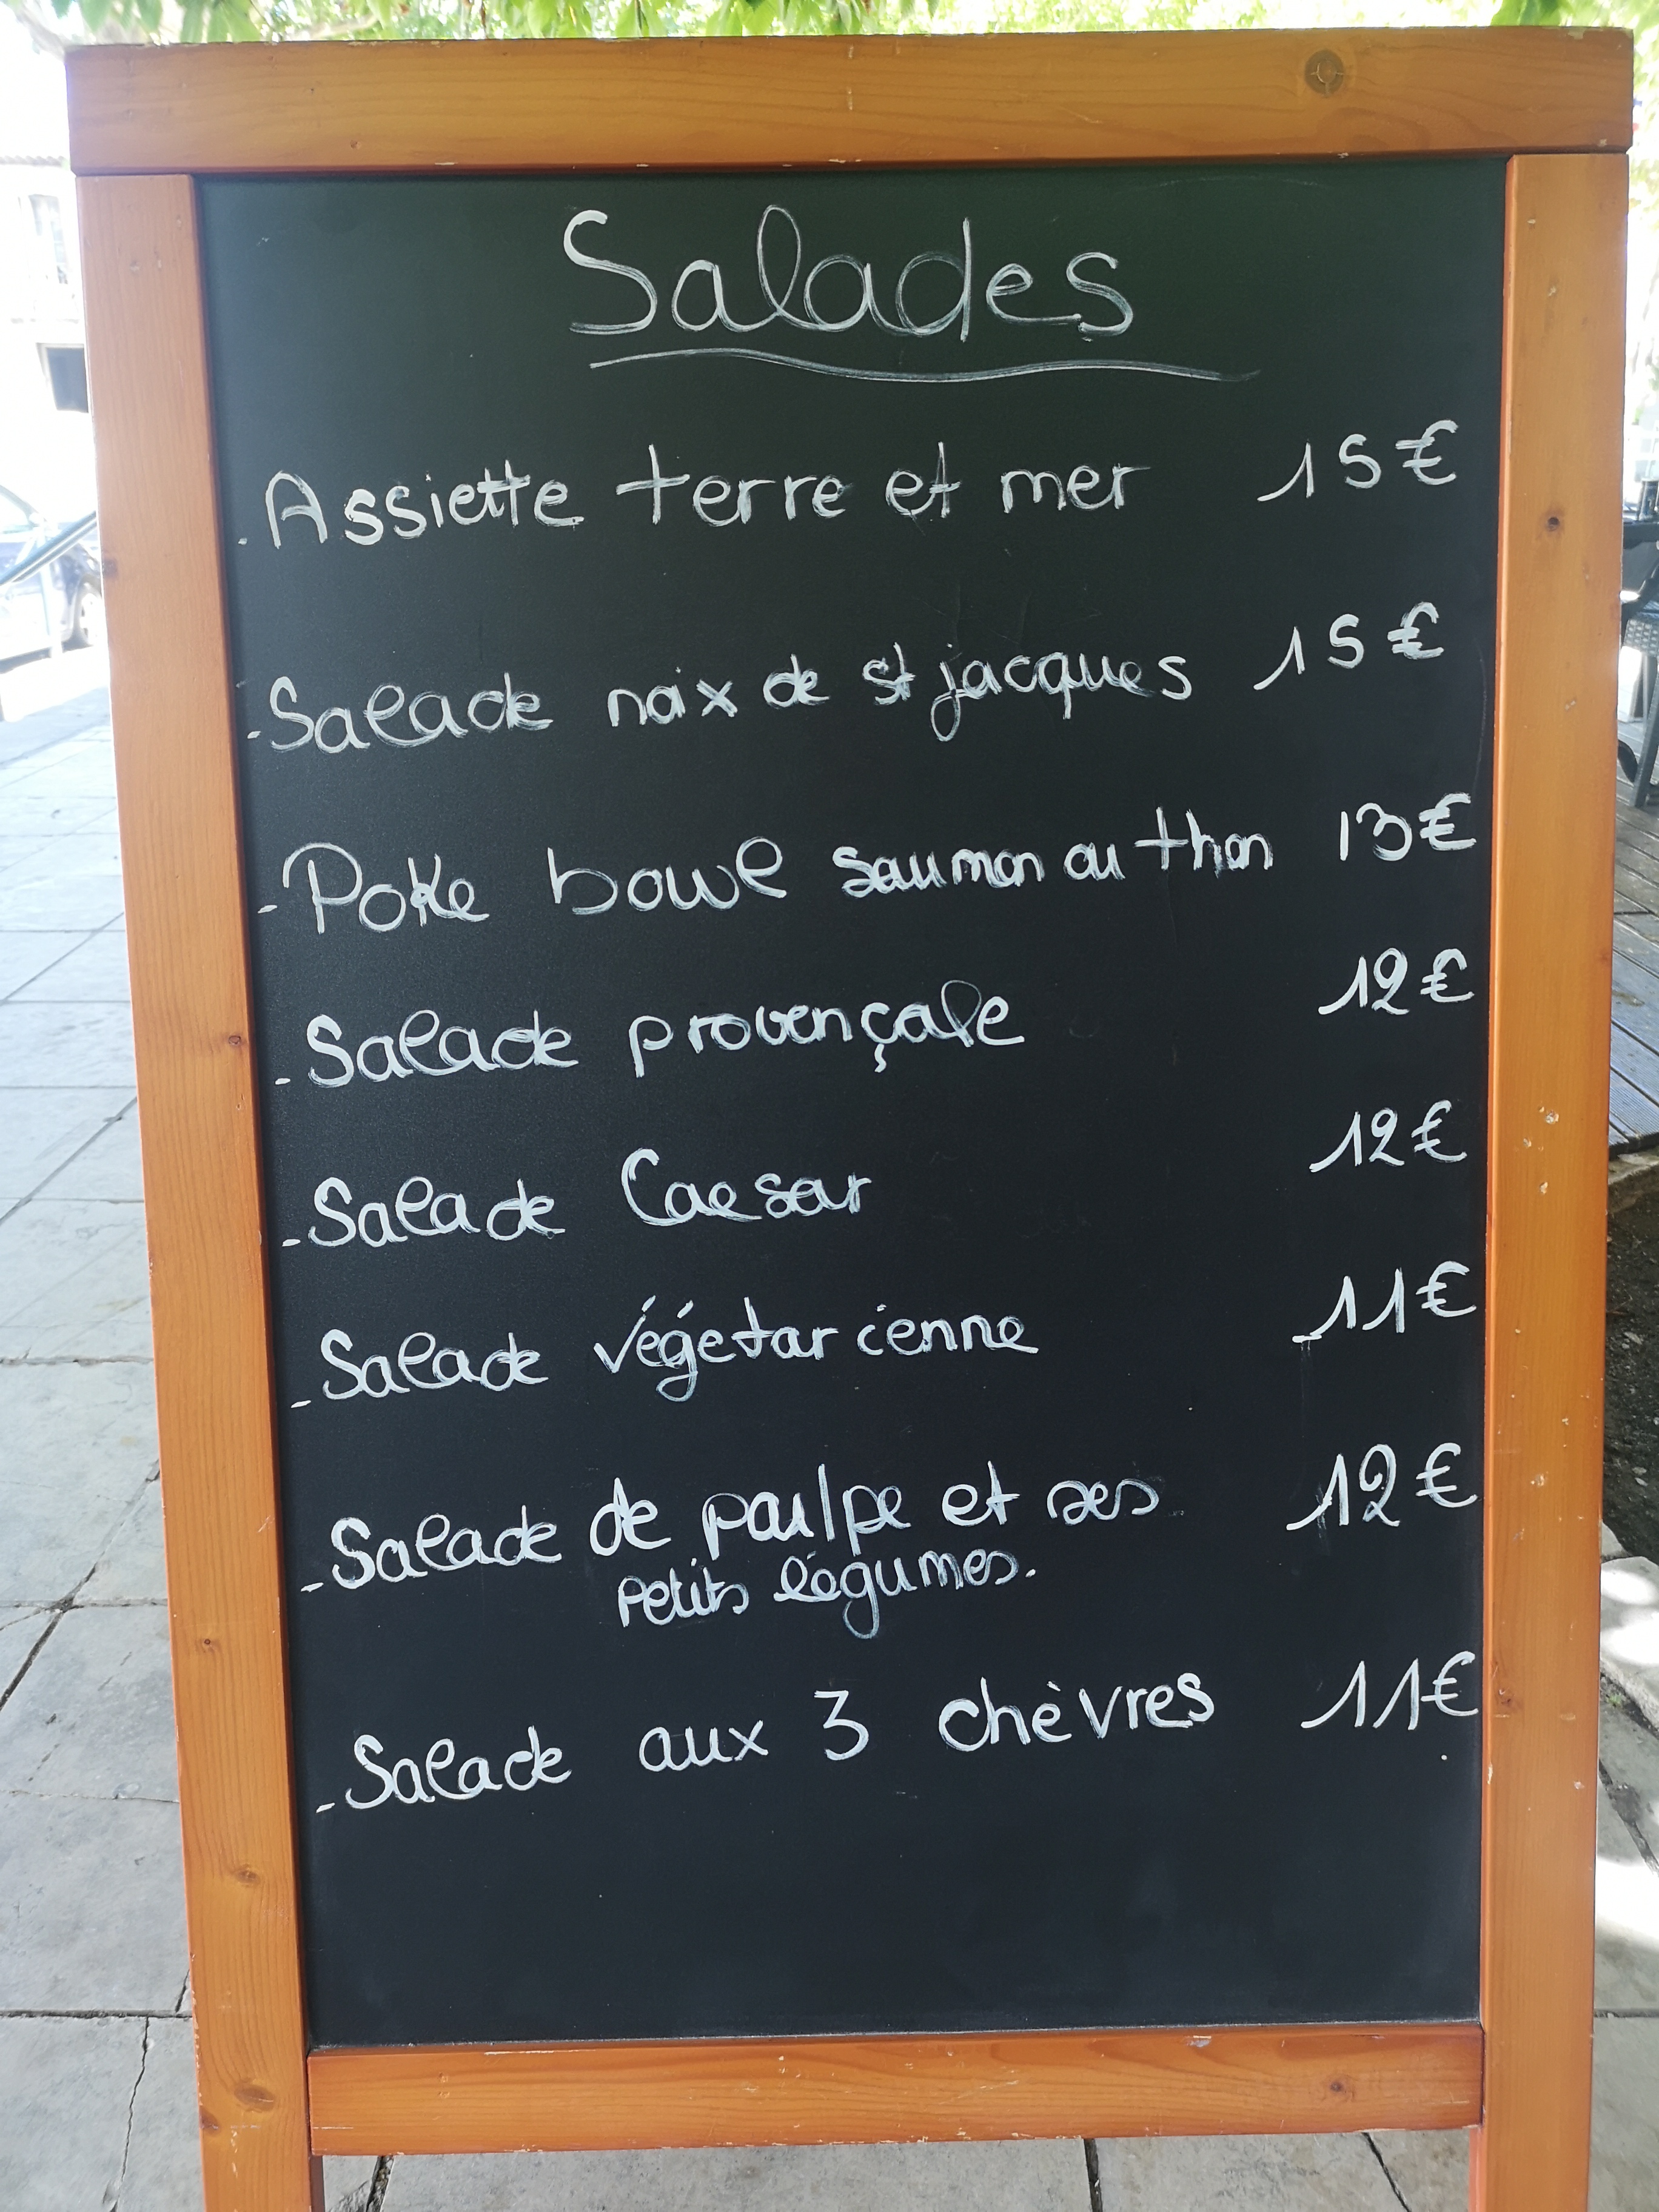 Salades
- Assiette terre et mer 15€
- Salade noix de st jacques 15€
- Poke bowl saumon ou thon 13€
- Salade provençale 12€
- Salade Caesar 12€
- Salade végétarienne 11€
- Salade de poulpe et ses 12€
Petits légumes.
- Salade aux 3 chèvres 11€